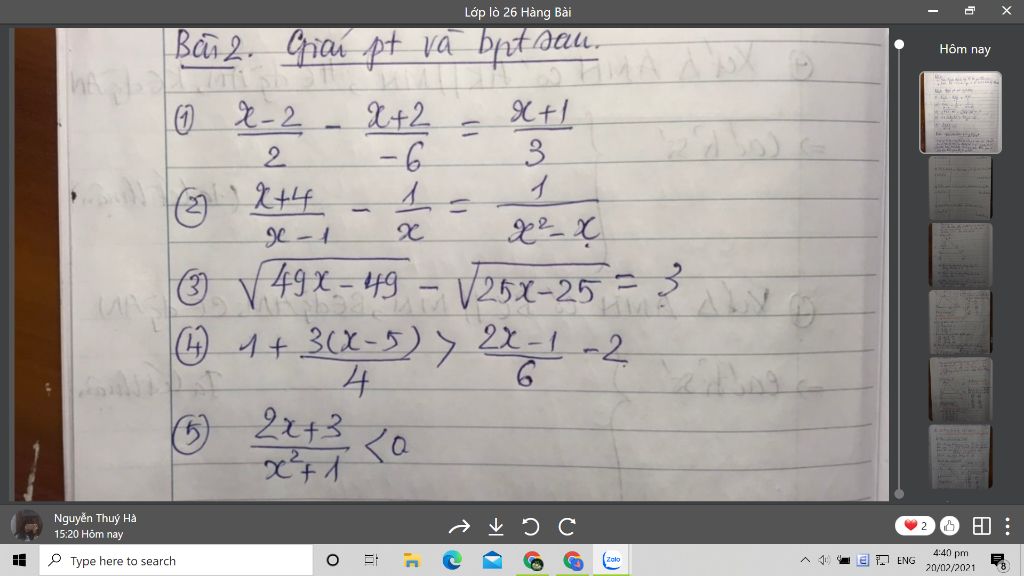 Lớp lò 26 Hàng Bài
Hôm nay
Bài 2. Giải pt và bpt sau.
① \frac{x-2}{2} - \frac{x+2}{-6} = \frac{x+1}{3}
② \frac{x+4}{x-1} - \frac{1}{x} = \frac{1}{x²-x}
③ √(49x-49) - √(25x-25) = 3
④ 1 + \frac{3(x-5)}{4} > \frac{2x-1}{6} - 2
⑤ \frac{2x+3}{x²+1} < 0
Nguyễn Thuý Hà
15:20 Hôm nay
2
Type here to search
Zalo
ENG
4:40 pm
20/02/2021
8